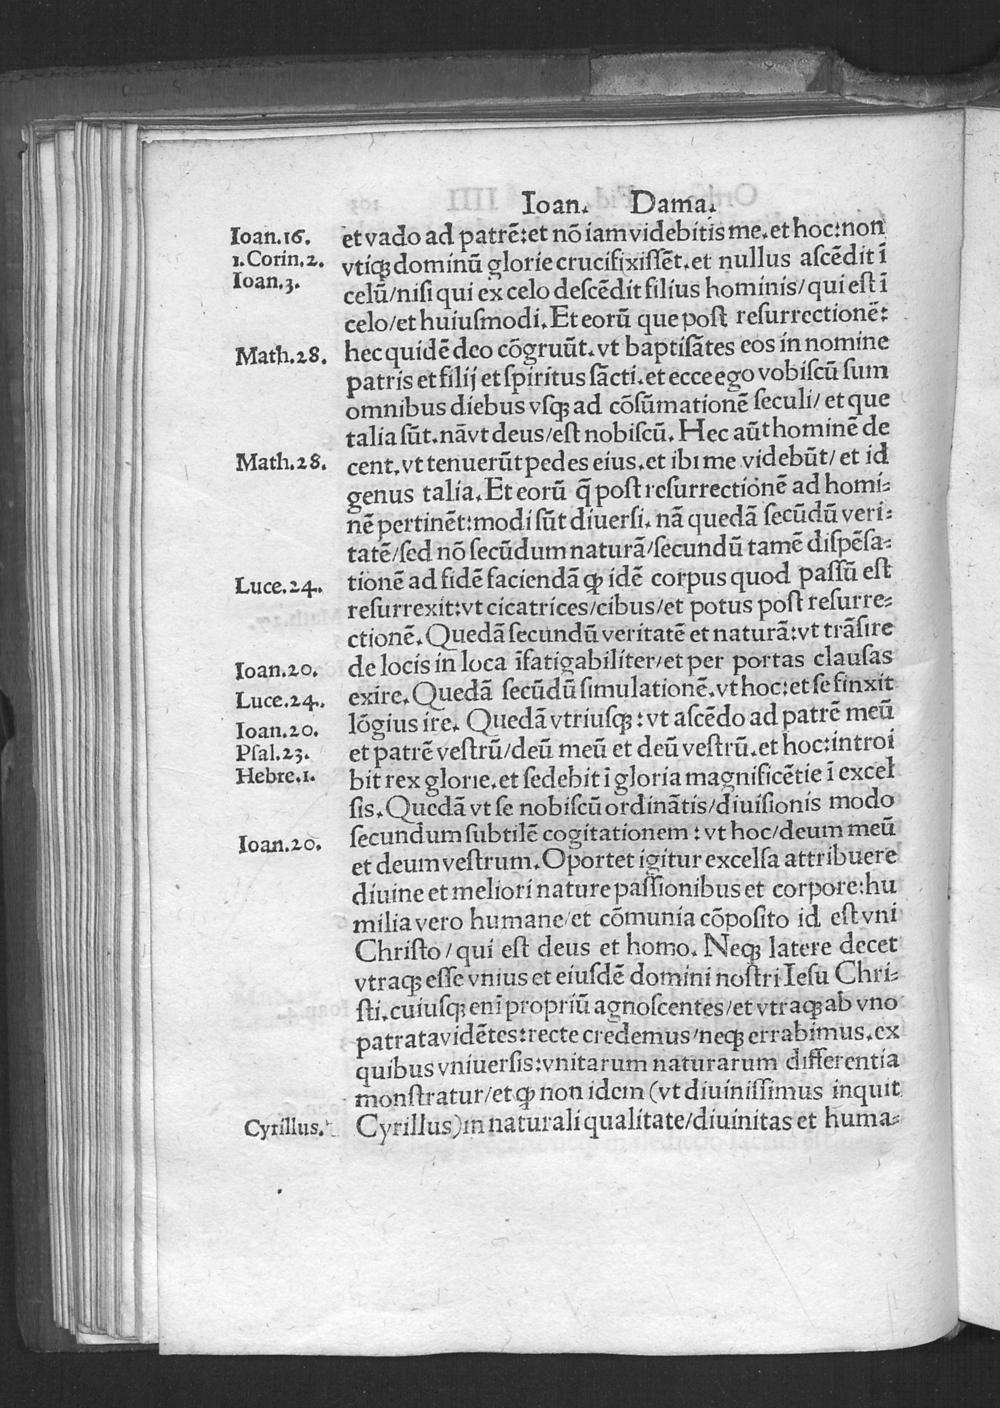 Ioan. Dama.
Ioan.16. et vado ad patrẽ:et nõ iam videbitis me.et hoc:non
1.Corin.2. vtiqꝫ dominũ glorie crucifixiſſẽt.et nullus aſcẽdit ĩ
Ioan.3. celũ/niſi qui ex celo deſcẽdit filius hominis/qui eſt ĩ
celo/et huiuſmodi.Et eorũ que poſt reſurrectionẽ:
Math.28. hec quidẽ deo cõgruũt.vt baptiſãtes eos in nomine
patris et filij et ſpiritus ſãcti.et ecce ego vobiſcũ ſum
omnibus diebus vſqꝫ ad cõſũmationẽ ſeculi/et que
talia ſũt.nã vt deus/eſt nobiſcũ. Hec aũt hominẽ de
Math.28. cent.vt tenuerũt pedes eius.et ibi me videbũt/et id
genus talia.Et eorũ q̃ poſt reſurrectionẽ ad homi⸗
nẽ pertinẽt:modi ſũt diuerſi.nã quedã ſecũdũ veri⸗
tatẽ/ſed nõ ſecũdum naturã/ſecundũ tamẽ diſpẽſa⸗
Luce.24. tionẽ ad fidẽ faciendã ꝙ idẽ corpus quod paſſũ eſt
reſurrexit:vt cicatrices/cibus/et potus poſt reſurre⸗
ctionẽ.Quedã ſecundũ veritatẽ et naturã:vt trãſire
Ioan.20. de locis in loca ĩfatigabiliter/et per portas clauſas
Luce.24. exire.Quedã ſecũdũ ſimulationẽ.vt hoc:et ſe finxit
Ioan.20. lõgius ire. Quedã vtriuſqꝫ:vt aſcẽdo ad patrẽ meũ
Pſal.23. et patrẽ veſtrũ/deũ meũ et deũ veſtrũ.et hoc:introi
Hebre.1. bit rex glorie.et ſedebit ĩ gloria magnificẽtie ĩ excel
ſis.Quedã vt ſe nobiſcũ ordinãtis/diuiſionis modo
Ioan.20. ſecundum ſubtilẽ cogitationem:vt hoc/deum meũ
et deum veſtrum.Oportet igitur excelſa attribuere
diuine et meliori nature paſſionibus et corpore:hu
milia vero humane/et cõmunia cõpoſito id eſt vni
Chriſto/qui eſt deus et homo. Neqꝫ latere decet
vtraqꝫ eſſe vnius et eiuſdẽ domini noſtri Ieſu Chri⸗
ſti.cuiuſqꝫ enĩ propriũ agnoſcentes/et vtraqꝫ ab vno
patrata vidẽtes:recte credemus/neqꝫ errabimus.ex
quibus vniuerſis:vnitarum naturarum differentia
monſtratur/et ꝙ non idem (vt diuiniſſimus inquit
Cyrillus. Cyrillus)in naturali qualitate/diuinitas et huma⸗